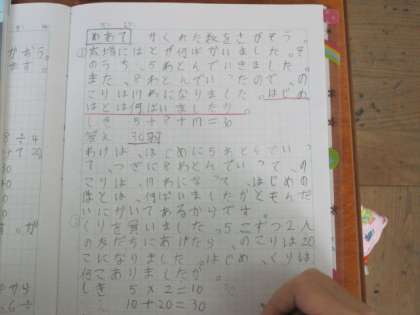 めあて かくれた数をさがそう。
① 広場にはとが何ばかいました。そ
のうち、5わとんでいきました。
また、8わとんでいったので、の
こりは17わになりました。はじめ
はとは何ばいましたか。
しき 5+8+17=30
答え 30羽
わけは、はじめに5わとんでいっ
て、つぎに8わとんでいって、の
こりは、17わになって、はじめの
はとは、何ばいましたかともんだ
いにかいてあるからです。
② くりを買いました。5こずつ2人
の友だちにあげたら、のこりは20
こになりました。はじめ、くりは
何こありましたか。
しき 5×2=10
10+20=30